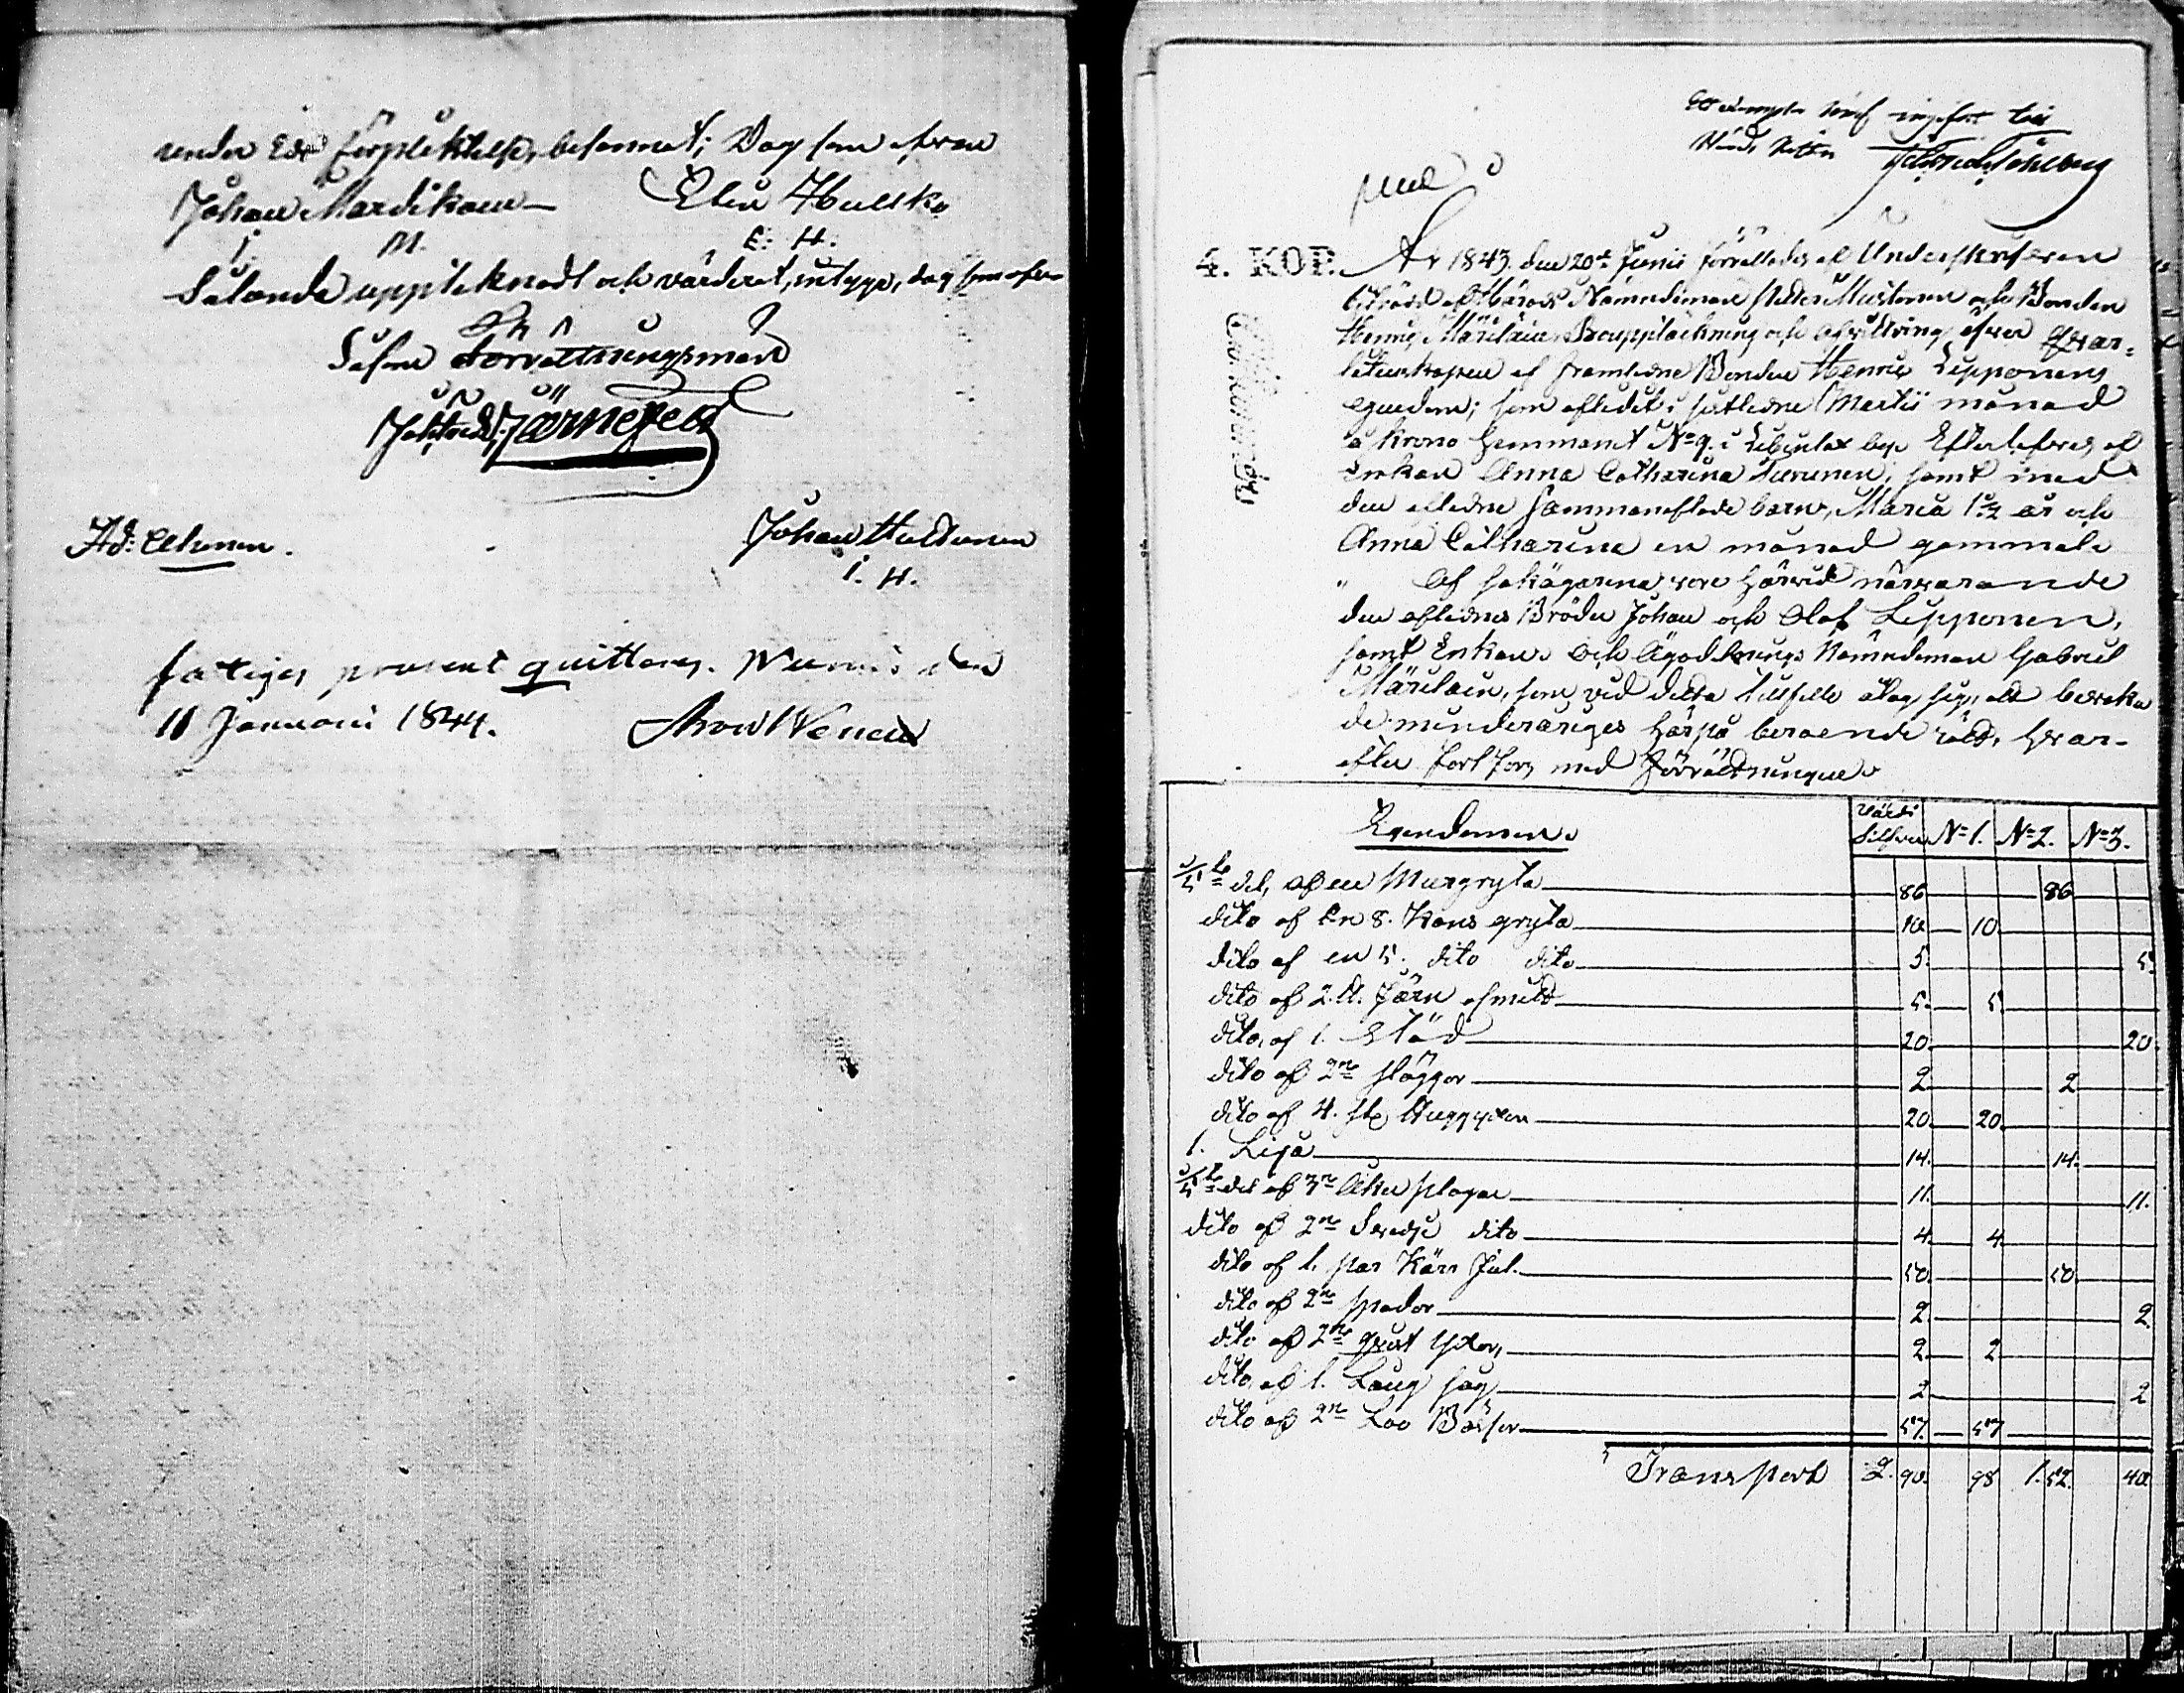 under Eds förpliktelse, besannat; Dag som ofvan
Johan Mardikain Elin Hulsko
I. M. E. H.
Sålunda upptecknadt och värderat, intyga, dag som ofvan
Såsom Förrättningsman
Järnefelt
Johan Hultunen
I. H.
fattiges procent quitteras. den
11 Januarii 1844. Aron Wenell
Ett exemplar häraf ingifvet till
Härads Rätten
4. KOP. År 1843. den 20de Junii förrättades af Underskrifven
biträdd af Härads Nämndeman Petter Mustonen och Bonden
Henric Märiläin, Bouppteckning och afvittring efter qvar-
låtenskapen af framledne Bonden Henric Lipponens
egendom; som afledit i sistledne Martii månad
å Krono hemmanet No 9. i by Efterlefves af
Enkan Anna Catharina Turunen, samt med
den afledne sammanaflade barn, Maria 1 1/2 år och
Anna Catharina en månad gammal.
" Af sakägarena voro härvid närvarande
den aflednes Bröder Johan och Olof Lipponen,
samt Enkan och Ägodelnings Nämndeman Gabriel
Märiläin, som vid detta tillfälle åtog sig, att bevaka
de minderåriges härpå beroende rätt, hvar-
efter fortfors med förrättningen.
Egendomen. Värde Silfver No 1. No 2. No 3.
del, af en Murgryta 86 86
dito af en 8. Kans gryta 10. 10
dito af en 5. dito dito 5. 5.
dito af 2. Järn 5. 5
dito, af 1. Städ 20. 20.
dito af 2ne släggor 2 2
dito af 4. st Huggyxor 20. 20.
1. Lija 14. 14.
del af 3ne Åker plogar 11. 11.
dito af 2ne Svedje dito 4. 4.
dito af 1. par Kärr Jul. 50. 50
dito af 2ne spador 2 2.
dito af 2ne yxor, 2 2
dito, af 1. Lång såg 2 2
dito af 2ne Lod Bössor 57. 57
Transport 2. 90. 98 1. 52. 40.